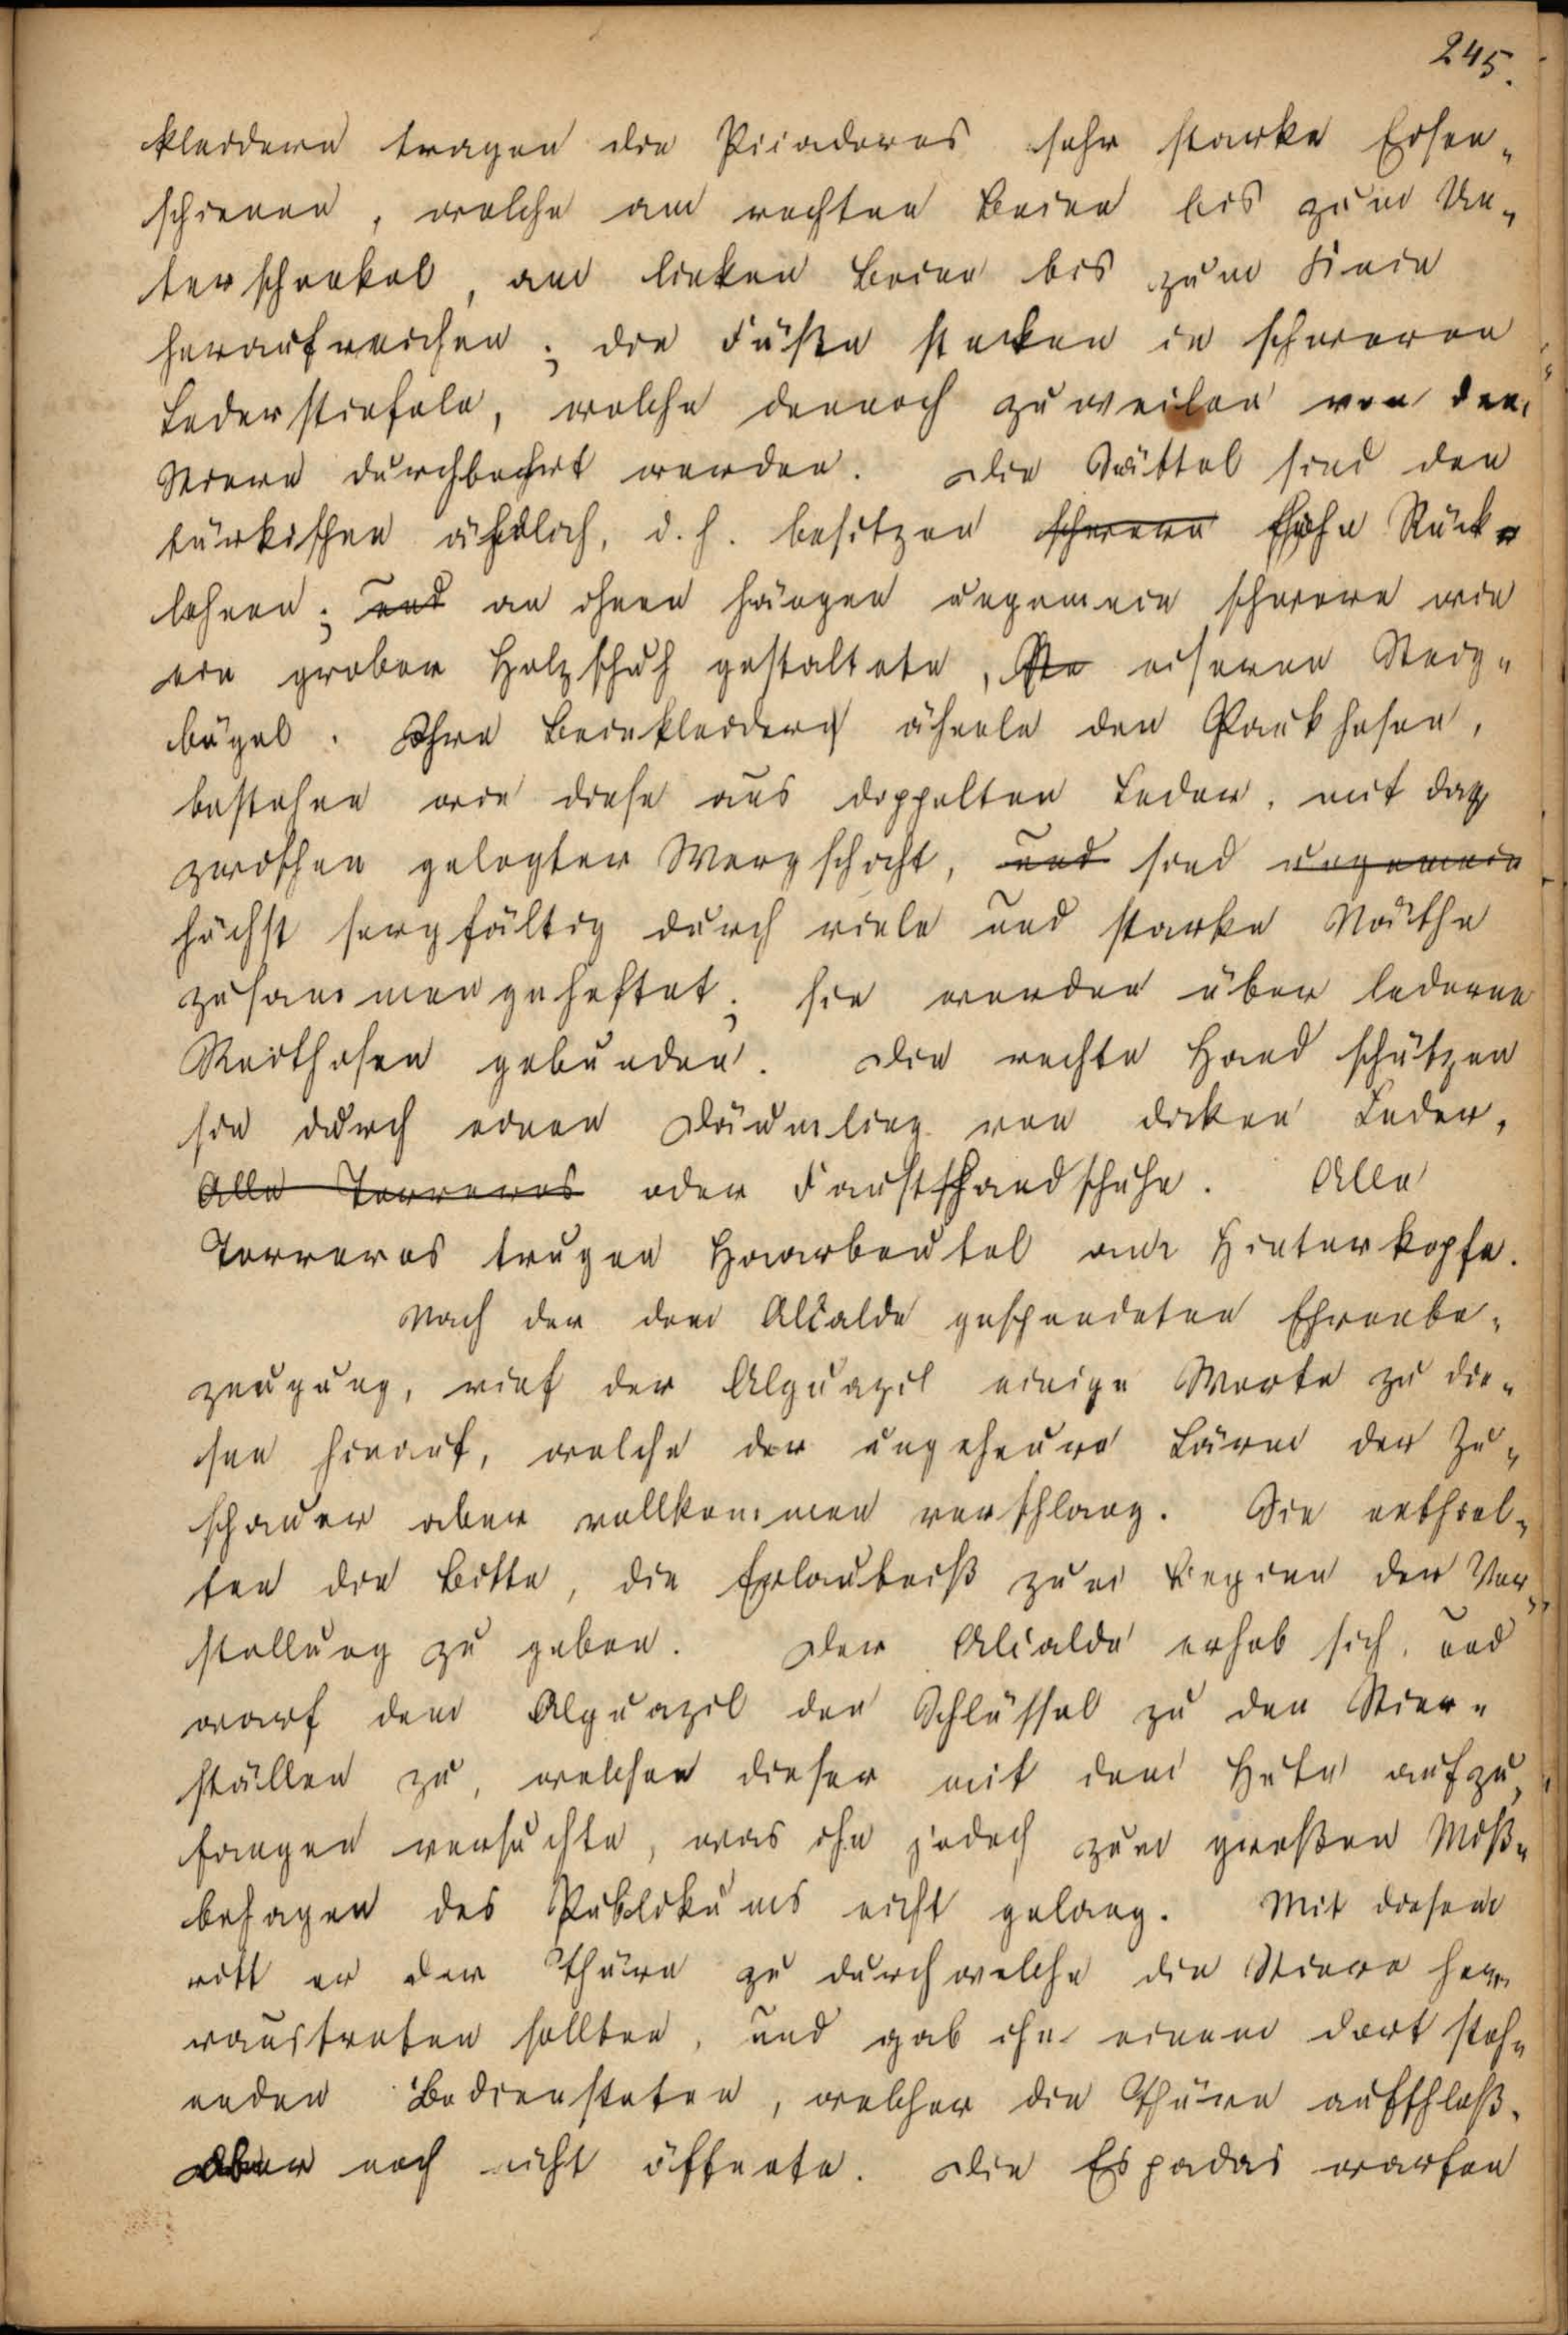 245.
kleidern tragen die Picadores sehr starke Eisen-
schienen, welche am rechten Beine bis zum Un-
terschenkel, am linken Beine bis zum Knie
heraufreichen; die Füße stecken in schweren
Lederstiefeln, welche dennoch zuweilen von den
Stieren durchbohrt werden. Die Sättel sind den
türkischen ähnlich, d. h. besitzen schwere hohe Rück-
lehnen; und an ihnen hängen ungemein schwere wie
ein grober Holzschuh gestaltete, eiserne Steig-
bügel. Ihre Beinkleider ähneln den Paukhosen,
bestehen wie diese aus doppelten Leder, mit da
zwischen gelegter Wergschicht, und sind ungemein
höchst sorgfältig durch viele und starke Näthe
zusammengeheftet; sie werden über lederne
Reithosen gebunden. Die rechte Hand schützen
sie durch einen Däumling von dicken Leder,
Alle Torreros oder Fausthandschuhe. Alle
Torreros trugen Haarbeutel am Hinterkopfe.
Nach der dem Alcalde gespendeten Ehrenbe-
zeugung, rief der Alguazil einige Worte zu die-
sen hinauf, welche der ungeheure Lärm der Zu-
schauer aber vollkommen verschlang. Sie enthiel-
ten die Bitte, die Erlaubniß zum Beginn der Vor-
stellung zu geben. Der Alcalde erhob sich, und
warf dem Alguazil den Schlüssel zu den Stier-
ställen zu, welchen dieser mit dem Hute aufzu-
fangen versuchte, was ihm jedoch zum großen Miß-
behagen des Publikums nicht gelang. Mit diesem
ritt er der Thüre zu durch welche die Stiere her-
raustreten sollten, und gab ihn einem dort steh-
enden Bediensteten, welcher die Thüre aufschloß,
aber noch nicht öffnete. Die Espadas warfen